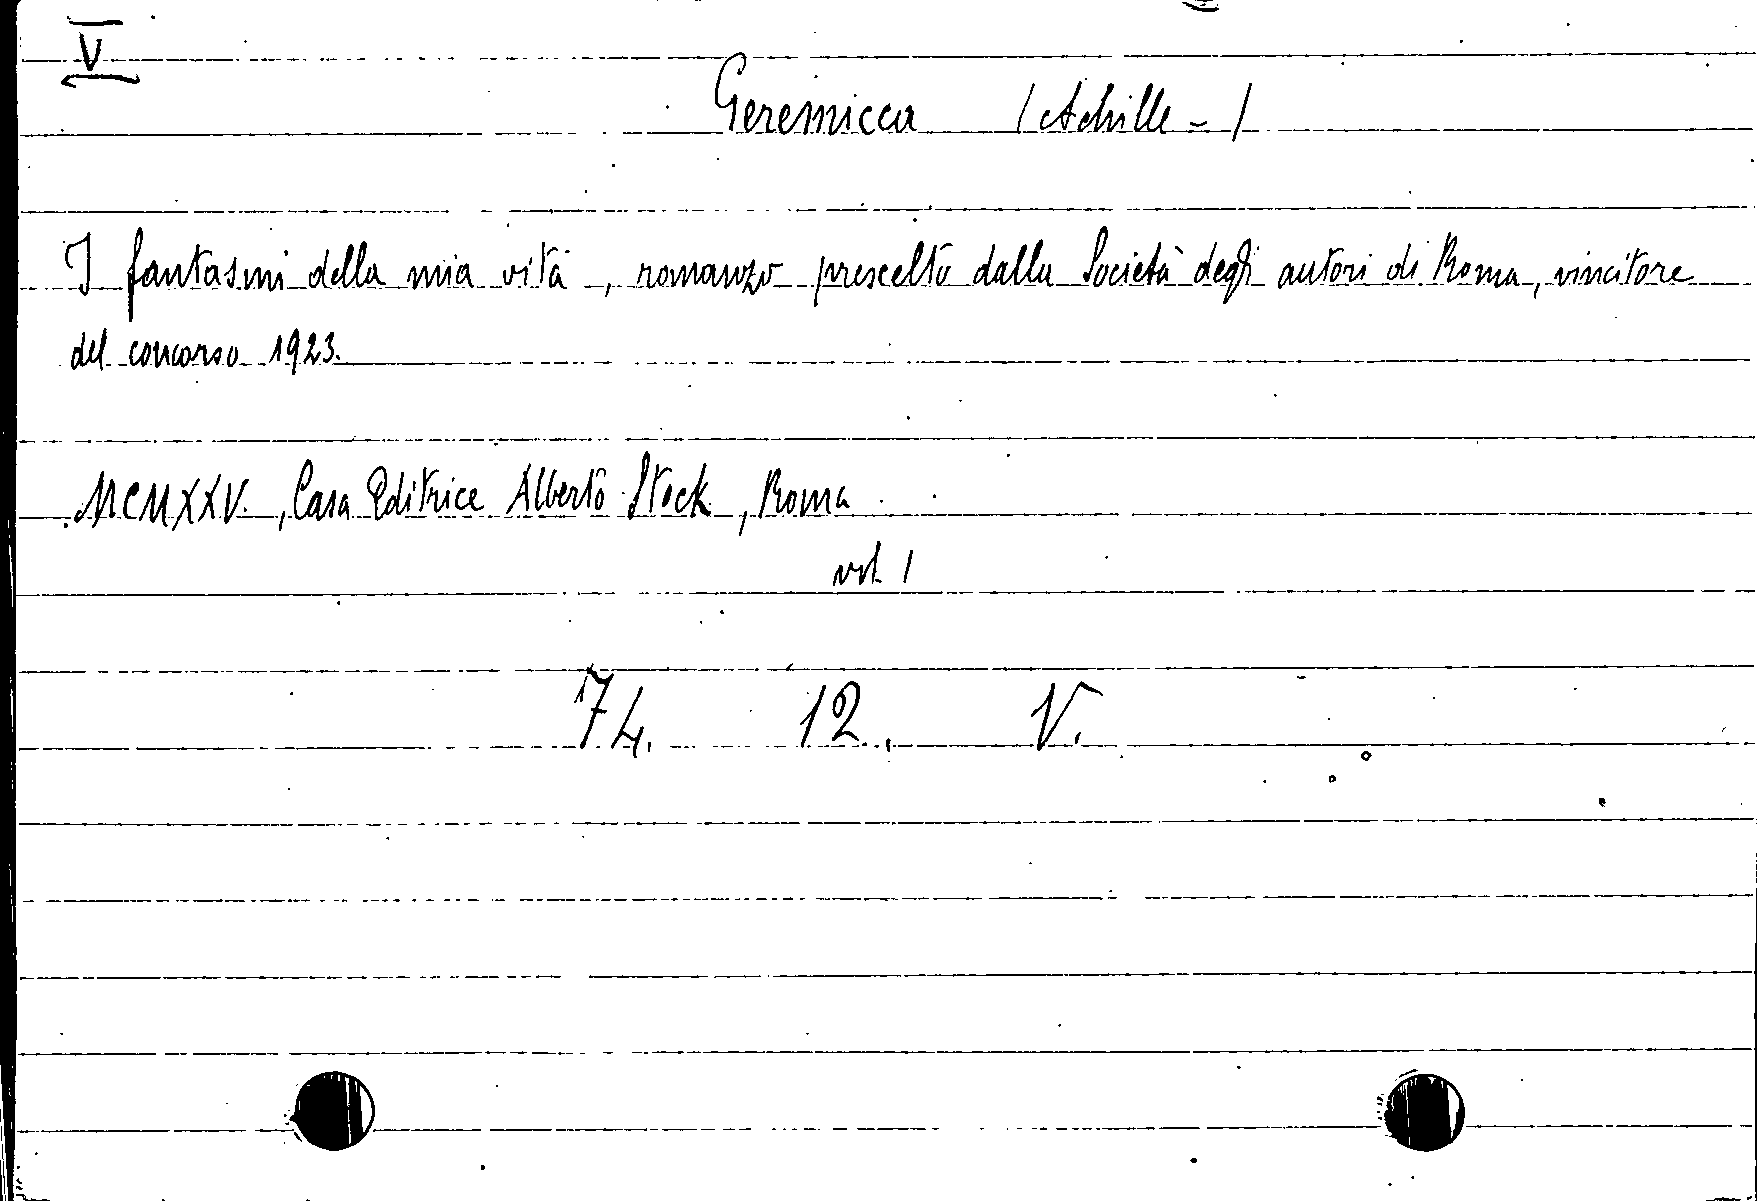 V
Geremicca (Achille - )
I fantasmi della mia vita, romanzo prescelto dalla Società degli autori di Roma, vincitore
del concorso 1923.
MCMXXV., Casa Editrice Alberto Stock, Roma
vol. 1
74. 12. V.